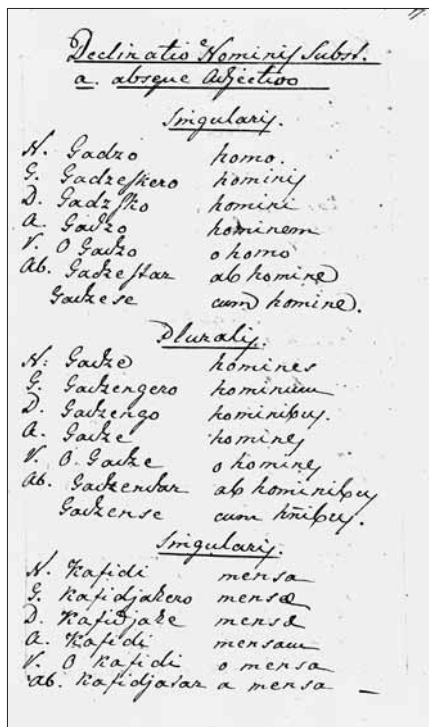 Declinatio Nominis Subst.
a. absque Adjectivo
Singularis.
N. Gadzo homo.
G. Gadzeskero hominis
D. Gadzesko homini
A. Gadzo hominem
V. O Gadzo o homo
Ab. Gadzestar ab homine
Gadzese cum homine.
Pluralis.
N: Gadze homines
G. Gadzengero hominum
D. Gadzengo hominibus.
A. Gadze homines
V. O Gadze o homines
Ab. Gadzendar ab hominibus
Gadzense cum hñibus.
Singularis.
N. Kafidi mensa
G. Kafidjakero mensæ
D. Kafidjake mensæ
A. Kafidi mensam
V. O Kafidi o mensa
Ab. Kafidjasar a mensa —